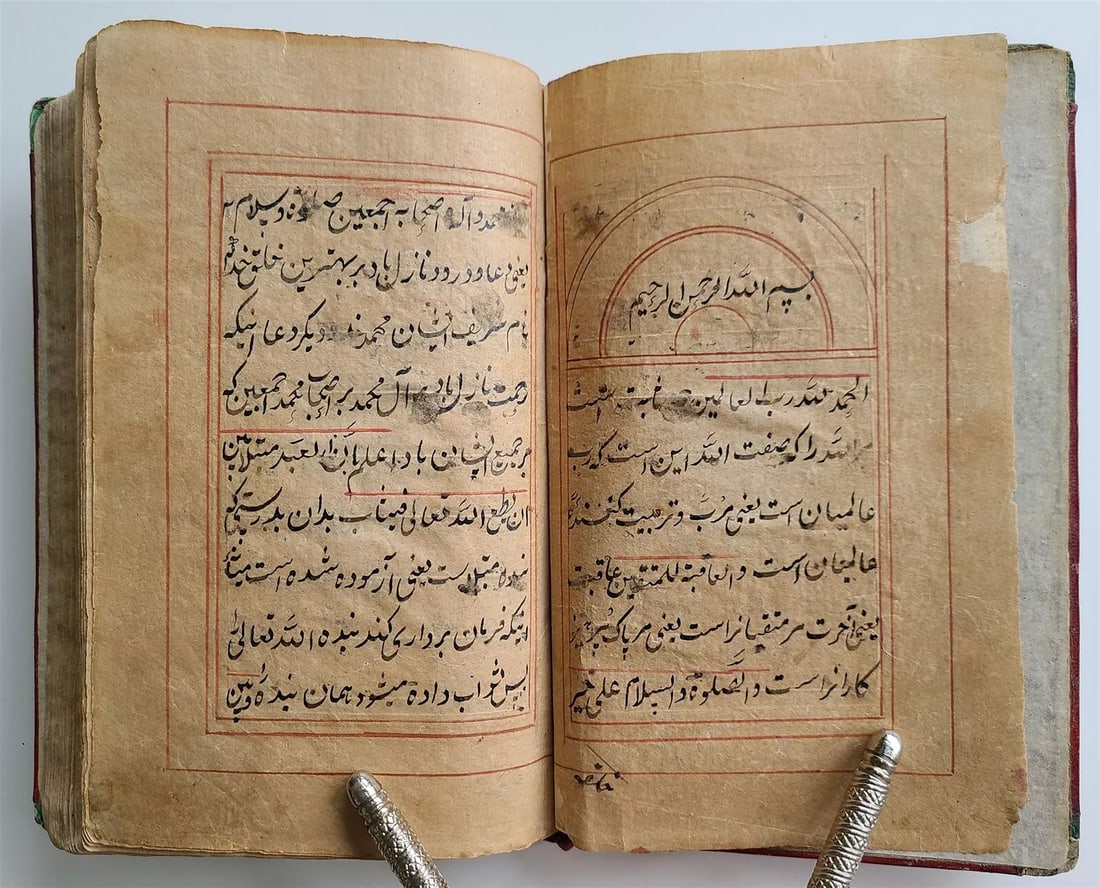 بسم الله الرحمن الرحیم
الحمد لله رب العالمین
الله را که صفت الله این است که رب
عالمیان است یعنی مرب و تربیت کنند
عالمیان است والعاقبة للمتقین عاقبت
یعنی آخرت مر متقیانراست یعنی مر پاک
کارانراست والصلوة والسلام علی خیر
واله اصحابه اجمعین وسلام
یعنی دعا و درود نازل باد بر بهترین خلق خدا
نام شریف ایشان محمد دیکر دعا اینکه
رحمت نازل باد بر آل محمد بر اصحاب محمد اجمعین که
بر جمیع ایشان باد اعلم بان العبد مبتلا بین
ان یطیع الله تعالی فیثاب بدان بدرستی که
بنده مبتلاست یعنی آزموده شده است میان
اینکه فرمان برداری کند بنده الله تعالی را
پس ثواب داده میشود همان بنده و بین